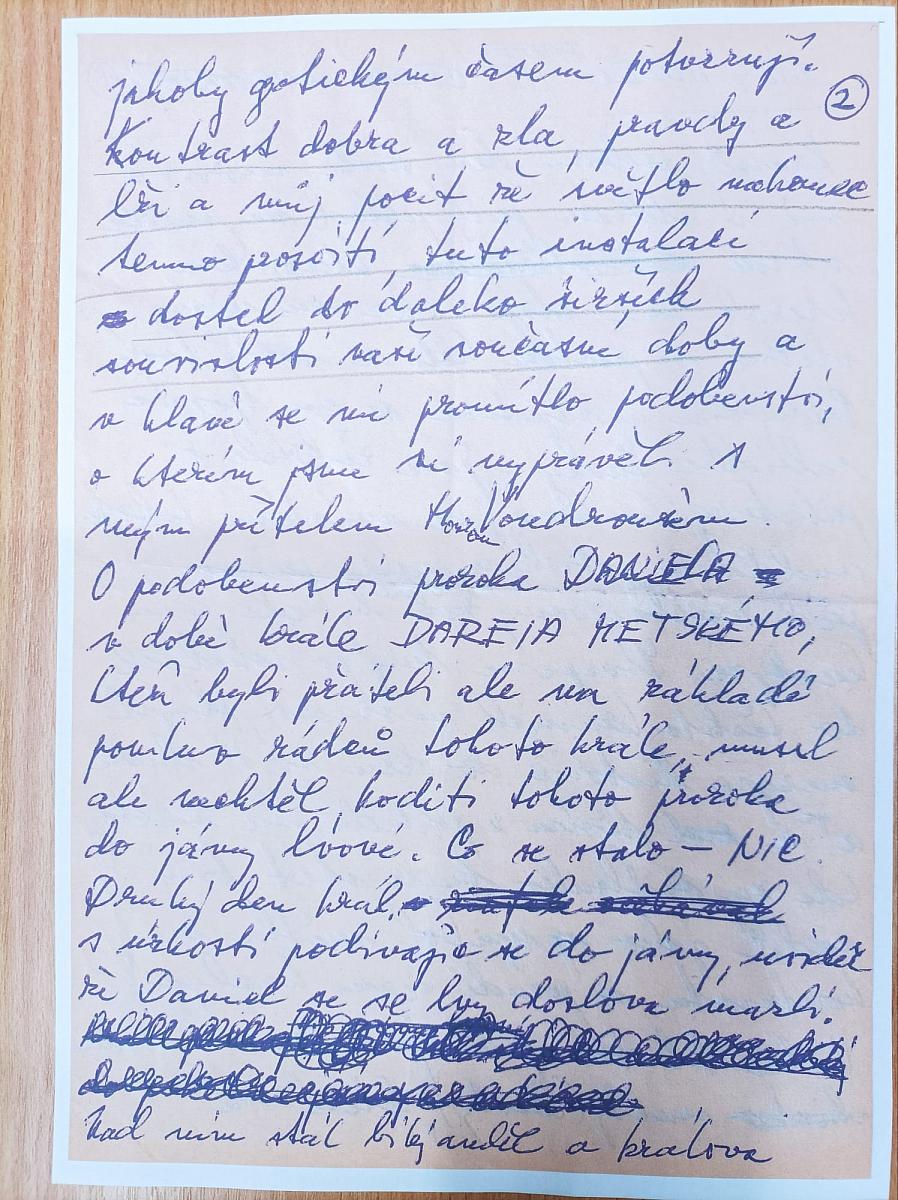 jakoby gotickým časem potvrzují.
2
Kontrast dobra a zla, pravdy a
lži a můj pocit že světlo nakonec
temno prosvítí, tuto instalaci
dostal do daleko širších
souvislostí naší současné doby a
v hlavě se mi promítlo podobenství,
o kterém jsme si vyprávěli s
mým přítelem Honzou Vondroušem.
O podobenství proroka DANIELA
v době krále DAREIA METSKÉHO,
kteří byli přáteli ale na základě
pomluv rádců tohoto krále, musel
ale nechtěl hoditi tohoto proroka
do jámy lvové. Co se stalo – NIC.
Druhý den král
s úzkostí podívaje se do jámy, uviděl
že Daniel se se lvy doslova mazlí.
Nad ním stál bílý anděl a králova